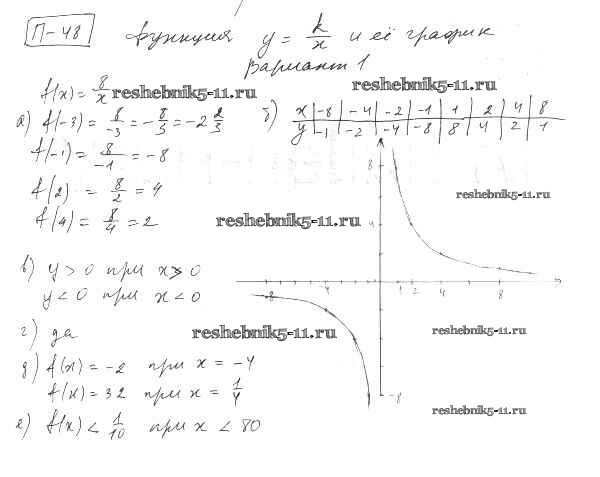 П-48 Функция y = k/x и её график
Вариант 1
f(x) = 8/x reshebnik5-11.ru reshebnik5-11.ru
а) f(-3) = 8/-3 = -8/3 = -2 2/3
б) x | -8 | -4 | -2 | -1 | 1 | 2 | 4 | 8
y | -1 | -2 | -4 | -8 | 8 | 4 | 2 | 1
f(-1) = 8/-1 = -8
f(2) = 8/2 = 4
f(4) = 8/4 = 2
reshebnik5-11.ru
reshebnik5-11.ru
8
4
-8 1 2 4 8
-8
в) y > 0 при x > 0
y < 0 при x < 0
г) да
reshebnik5-11.ru
reshebnik5-11.ru
д) f(x) = -2 при x = -4
f(x) = 32 при x = 1/4
е) f(x) < 1/10 при x < 80
reshebnik5-11.ru